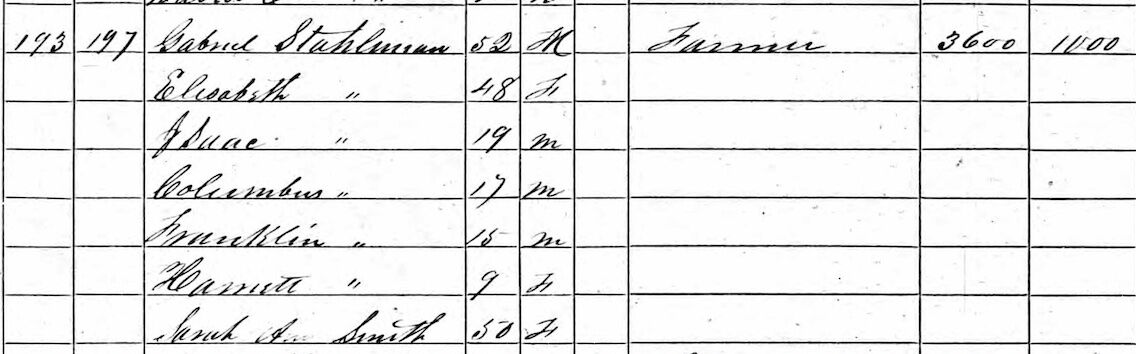 193 197 Gabriel Stahlman 52 M Farmer 3600 1000
Elisabeth " 48 F
Isaac " 19 m
Columbus " 17 m
Franklin " 15 m
Harriett " 9 F
Sarah Ann Smith 50 F